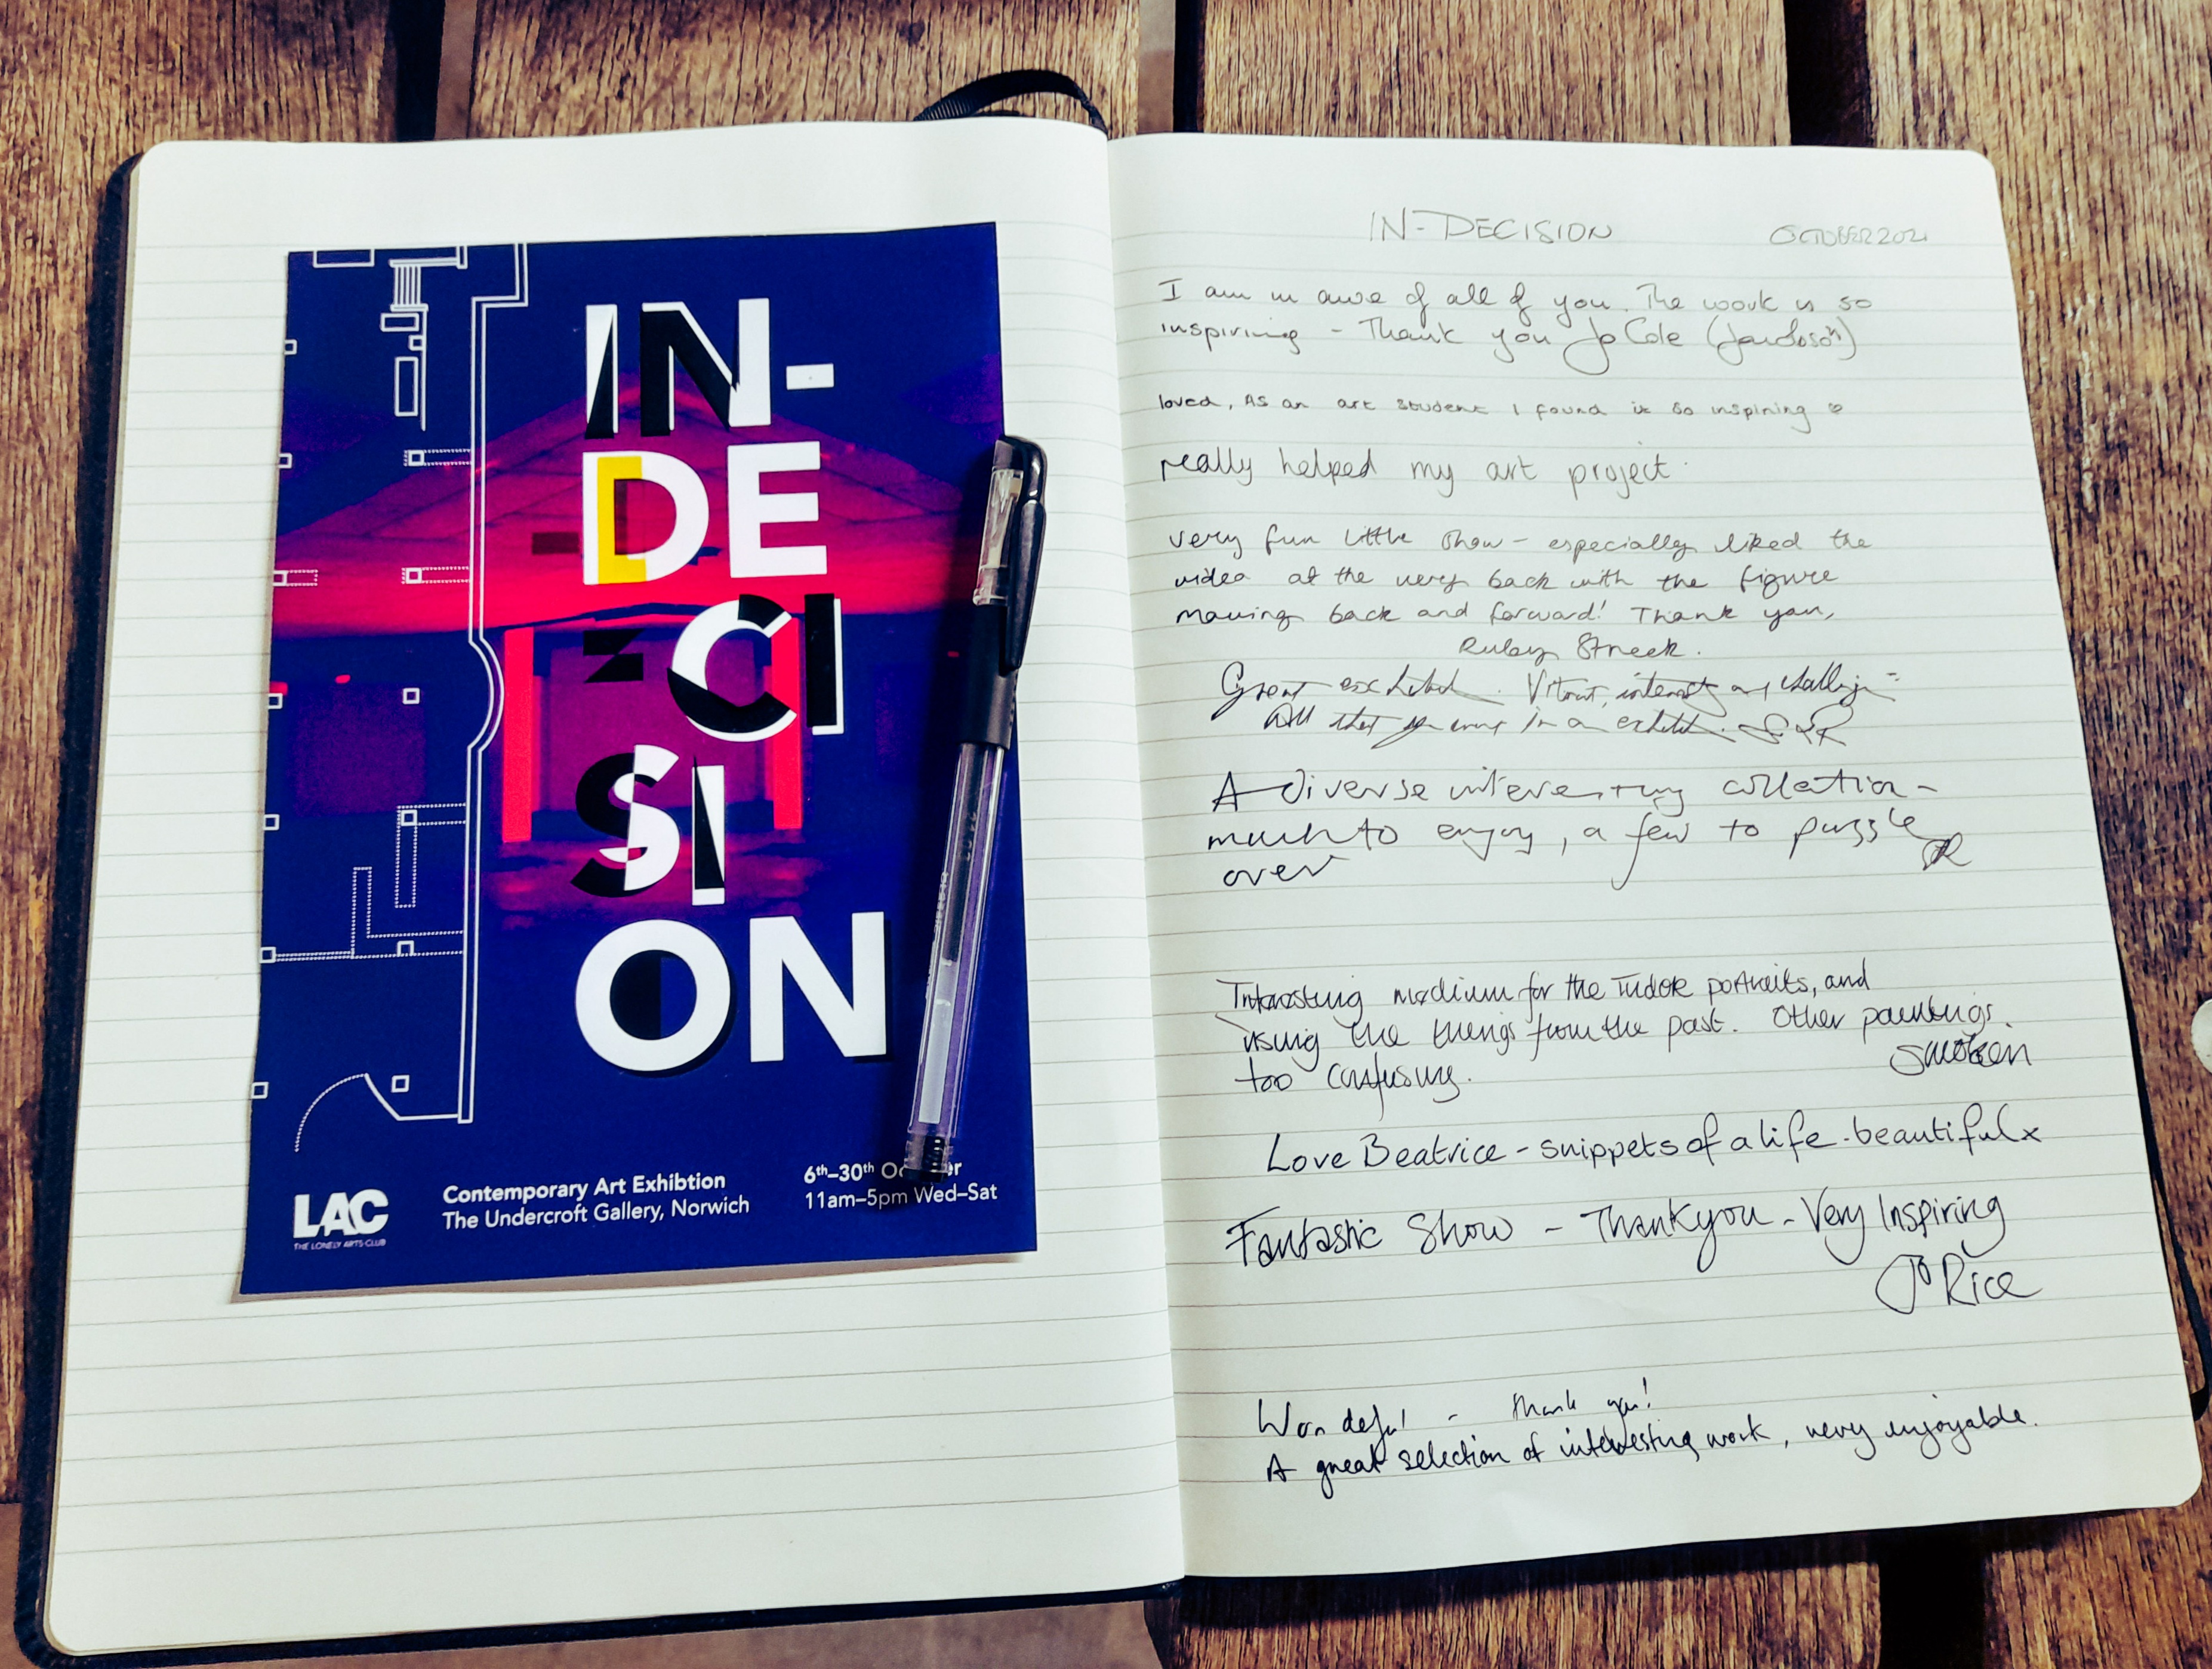 IN-
DE
CI
SI
ON
LAC
THE LONELY ARTS CLUB
Contemporary Art Exhibtion
The Undercroft Gallery, Norwich
6th–30th Oc er
11am–5pm Wed–Sat
IN-DECISION OCTOBER 2021
I am in awe of all of you. The work is so
inspiring - Thank you Jo Cole
loved, As an art student I found it so inspiring
really helped my art project.
very fun little show - especially liked the
video at the very back with the figure
moving back and forward! Thank you,
Ruby
Great
All that you in a
A diverse interesting collection -
much to enjoy, a few to puzzle
over
Interesting medium for the Tudor portraits, and
using the things from the past. Other paintings.
too confusing.
Love Beatrice - snippets of a life - beautiful x
Fantastic Show - Thankyou - Very Inspiring
Jo Rice
Wonderful - thank you!
A great selection of interesting work, very enjoyable.